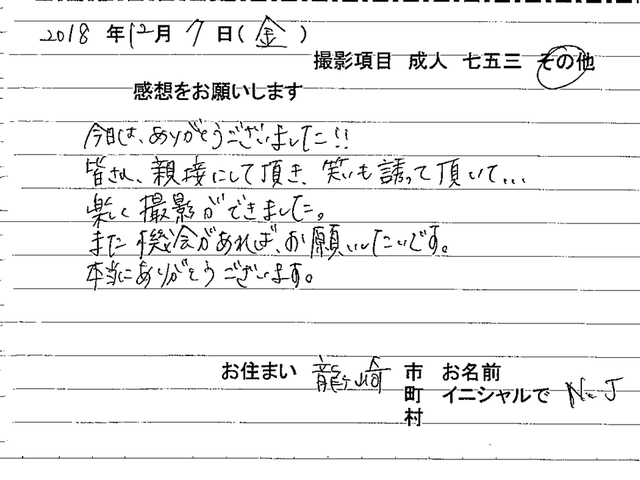 2018年12月7日(金)
撮影項目 成人 七五三 その他
感想をお願いします
今日は、ありがとうございました!!
皆さん、親接にして頂き、笑いも誘って頂いて...
楽しく撮影ができました。
また機会があれば、お願いしたいです。
本当にありがとうございます。
お住まい 龍ヶ崎 市 お名前
町 イニシャルで N.J
村